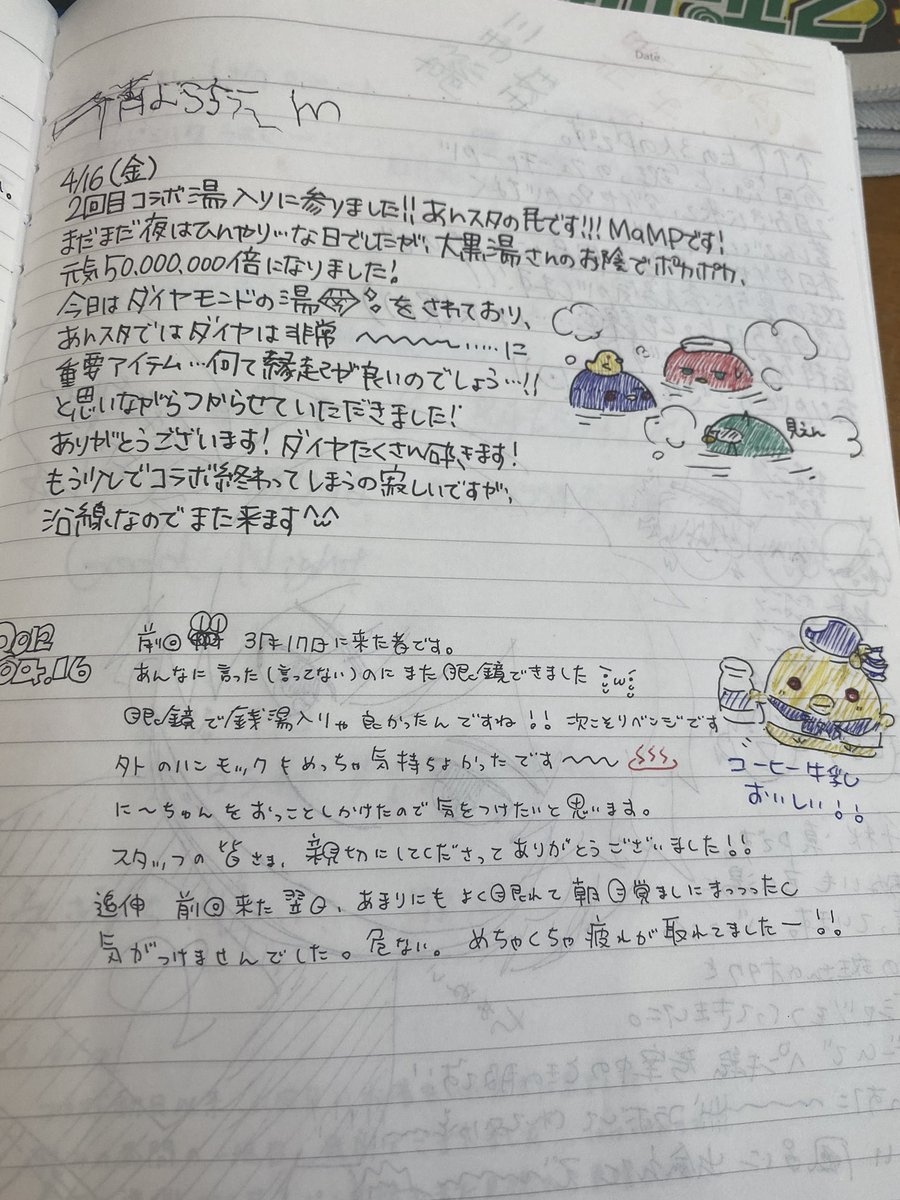 Date
4/16(金)
2回目コラボ湯入りに参りました!! あんスタの民です!!! MaMPです!
まだまだ夜はひんやり…な日でしたが、大黒湯さんのお陰でポカポカ、
元気50,000,000倍になりました!
今日はダイヤモンドの湯をされており、
あんスタではダイヤは非常 〜〜〜……に
重要アイテム…何て縁起が良いのでしょう…!!
と思いながらつからせていただきました!
ありがとうございます! ダイヤたくさん砕きます!
もう少しでコラボ終わってしまうの寂しいですが、
沿線なのでまた来ます^^
見えん
04.16
前回 3月17日に来た者です。
あんなに言った(言ってない)のにまた眼鏡できました
眼鏡で銭湯入りゃ良かったんですね!! 次こそリベンジです
外のハンモックもめっちゃ気持ちよかったです〜〜
に〜ちゃんをおっことしかけたので気をつけたいと思います。
スタッフの皆さま、親切にしてくださってありがとうございました!!
追伸 前回来た翌日、あまりにもよく眠れて朝目覚ましにまっったく
気がつけませんでした。危ない。めちゃくちゃ疲れが取れてましたー!!
コーヒー牛乳
おいしい!!